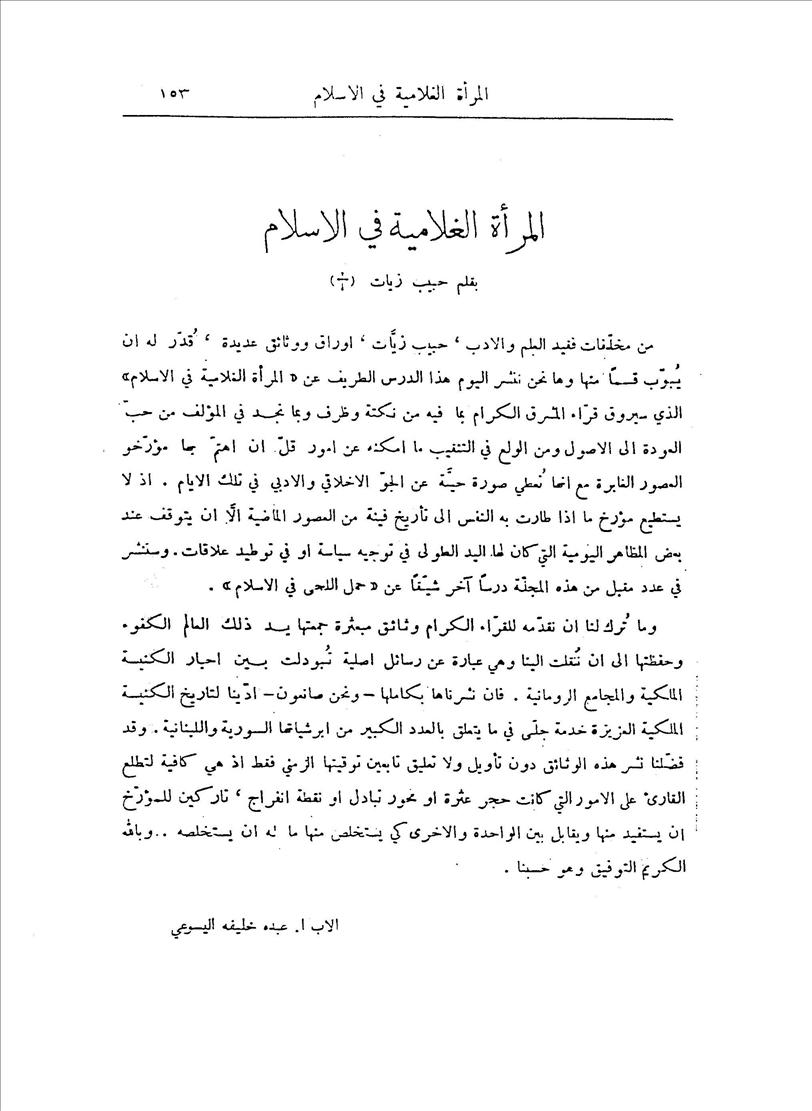 المرأة الغلامية في الاسلام ١٥٣
المرأة الغلامية في الاسلام
بقلم حبيب زيات (†)
من مخلّفات فقيد العلم والادب ، حبيب زيَّات ، اوراق ووثائق عديدة ، قُدّر له ان
يُبوّب قسماً منها وها نحن ننشر اليوم هذا الدرس الطريف عن « المرأة الغلامية في الاسلام»
الذي سيروق قرّاء المشرق الكرام بما فيه من نكتة وظرف وبما نجد في المؤلف من حبّ
العودة الى الاصول ومن الولع في التنقيب ما امكنه عن امور قلّ ان اهتمّ بها مؤرّخو
العصور الغابرة مع انها تُعطي صورة حيَّة عن الجوّ الاخلاقي والادبي في تلك الايام . اذ لا
يستطيع مؤرخ ما اذا طارت به النفس الى تأريخ فينة من العصور الماضية الَّا ان يتوقف عند
بعض المظاهر اليومية التي كان لها اليد الطولى في توجيه سياسة او في توطيد علاقات . وسننشر
في عدد مقبل من هذه المجلّة درساً آخر شيّقاً عن « حمل اللحى في الاسلام » .
وما تُرك لنا ان نقدّمه للقرّاء الكرام وثائق مبعثرة جمعتها يد ذلك العالم الكفوء
وحفظتها الى ان نُقلت الينا وهي عبارة عن رسائل اصلية تُبودلت بين احبار الكنيسة
الملكية والمجامع الرومانية . فان نشرناها بكاملها –ونحن صانعون– ادّينا لتاريخ الكنيسة
الملكية العزيزة خدمة جلّى في ما يتعلق بالعدد الكبير من ابرشياتها السورية واللبنانية . وقد
فضّلنا نشر هذه الوثائق دون تأويل ولا تعليق تابعين توقيتها الزمني فقط اذ هي كافية لتطلع
القارئ على الامور التي كانت حجر عثرة او محور تبادل او نقطة انفراج ، تاركين للمؤرّخ
ان يستفيد منها ويقابل بين الواحدة والاخرى كي يستخلص منها ما له ان يستخلصه .. وبالله
الكريم التوفيق وهو حسبنا .
الاب ا. عبده خليفه اليسوعي